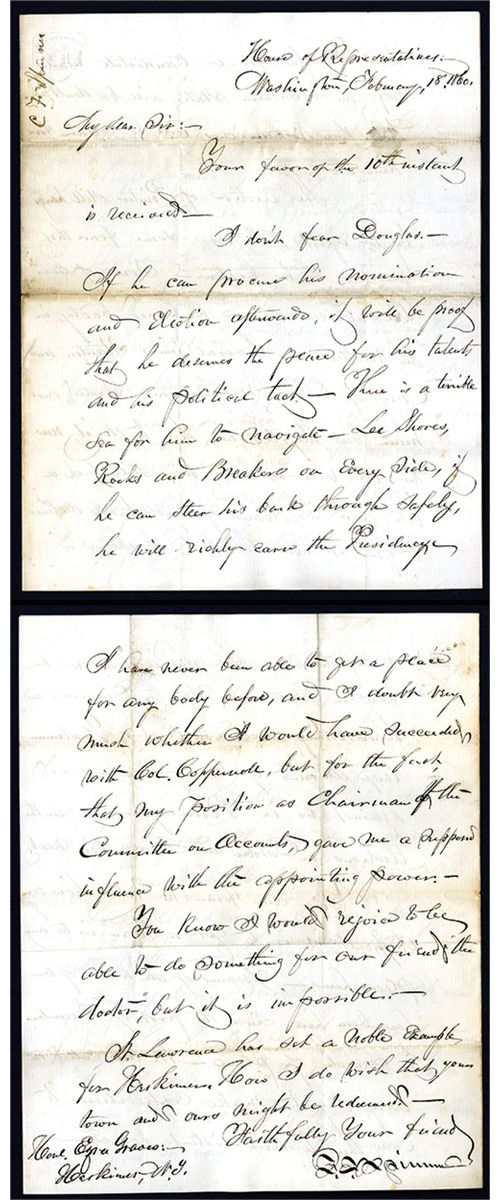 C F Spinner
House of Representatives.
Washington, February, 18. 1860.
My dear Sir:—
Your favor of the 10th instant
is received.—
I don't fear Douglas.—
If he can procure his nomination
and Election afterwards, it will be proof
that he deserves the peace for his talents
and his political tact,— There is a terrible
Sea for him to navigate— Lee Shores,
Rocks and Breakers on Every Side, if
he can steer his bark through safely,
he will richly earn the Presidency
I have never been able to get a place
for any body before, and I doubt very
much whether I would have succeeded,
with Col. Coppernoll, but for the fact,
that my position as Chairman of the
Committee on Accounts, gave me a supposed
influence with the appointing power.—
You know I would rejoice to be
able to do something for our friend "the
doctor", but it is impossible.—
St. Lawrence has set a noble Example
for Herkimer. How I do wish that your
town and ours might be redeemed.—
Faithfully Your friend
Honl. Ezra Graves:
Herkimer, N.Y.
F. E. Spinner